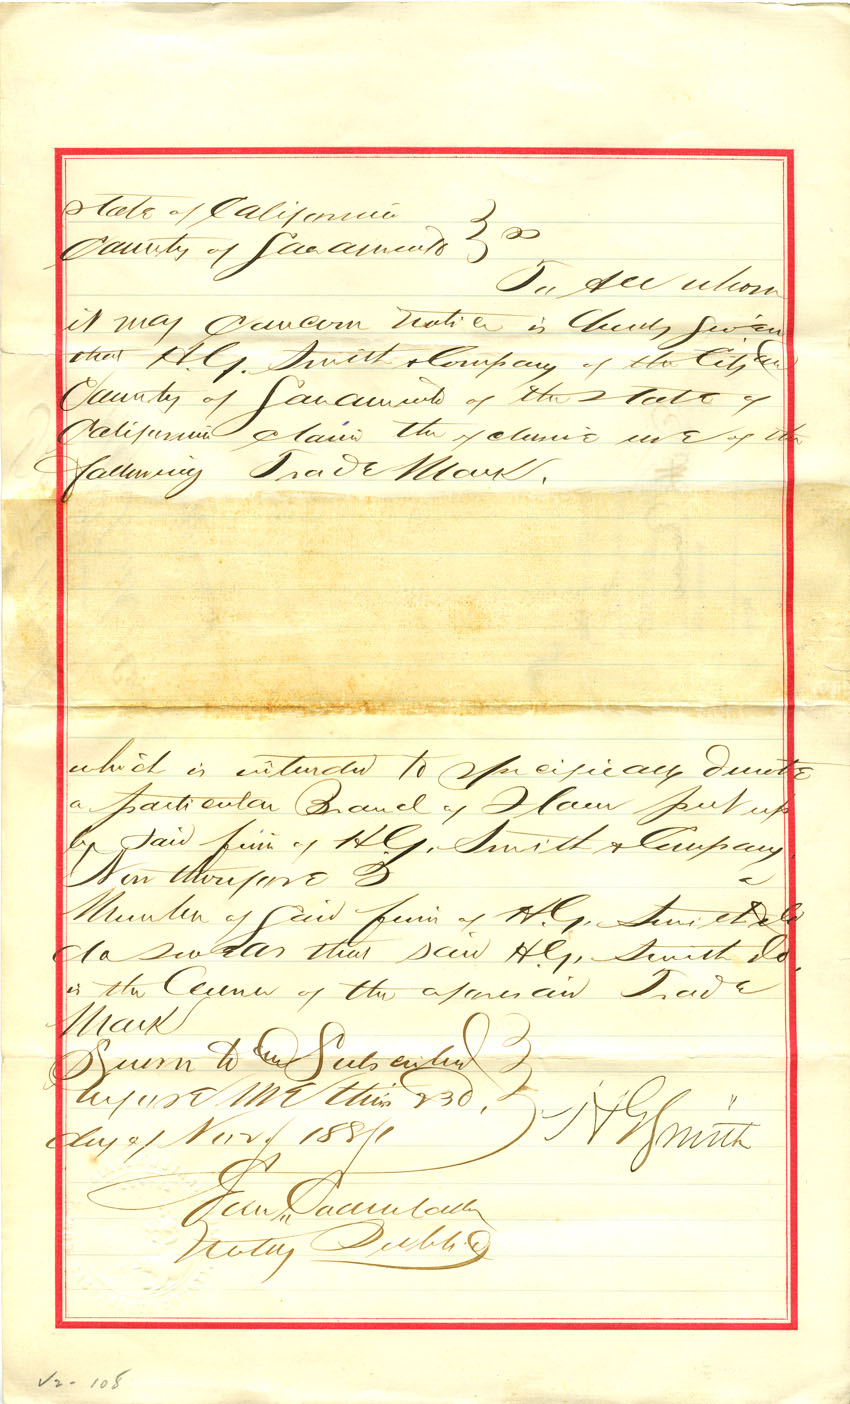 State of California
County of Sacramento } ss
To All whom
it may Concern Notice is hereby Given
that H.G. Smith & Company of the City and
County of Sacramento of the State of
California claim the exclusive use of the
following Trade Mark.
which is intended to specifically denote
a particular Brand of Flour put up
by said firm of H.G. Smith & Company.
Now therefore I a
Member of Said firm of H.G. Smith & Co
do swear that said H.G. Smith & Co.
is the Owner of the aforesaid Trade
Mark
Sworn to and Subscribed
before Me this 23d.
day of Nov 188
H G Smith
Notary Public
V2 - 108